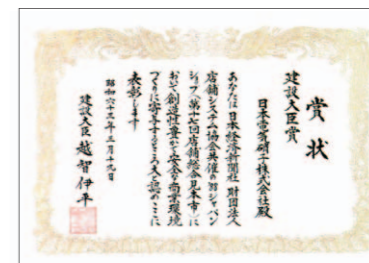 賞状
建設大臣賞
日本電気硝子株式会社殿
あなたは日本経済新聞社 財団法人
店舗システム協会共催の88ジャパン
ショップ(第十七回店舗総合見本市)に
おいて創造性豊かで安全な商業環境
づくりに寄与するところ大と認めここに
表彰します
昭和六十三年二月十九日
建設大臣 越智伊平